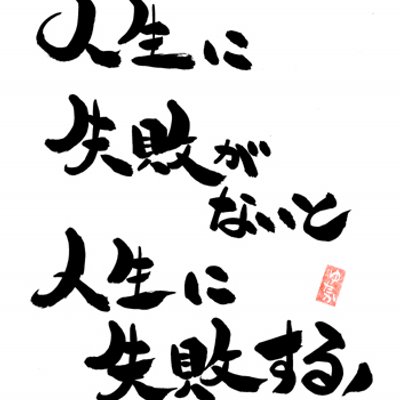 人生に
失敗が
ないと
人生に
失敗する
ゆたか